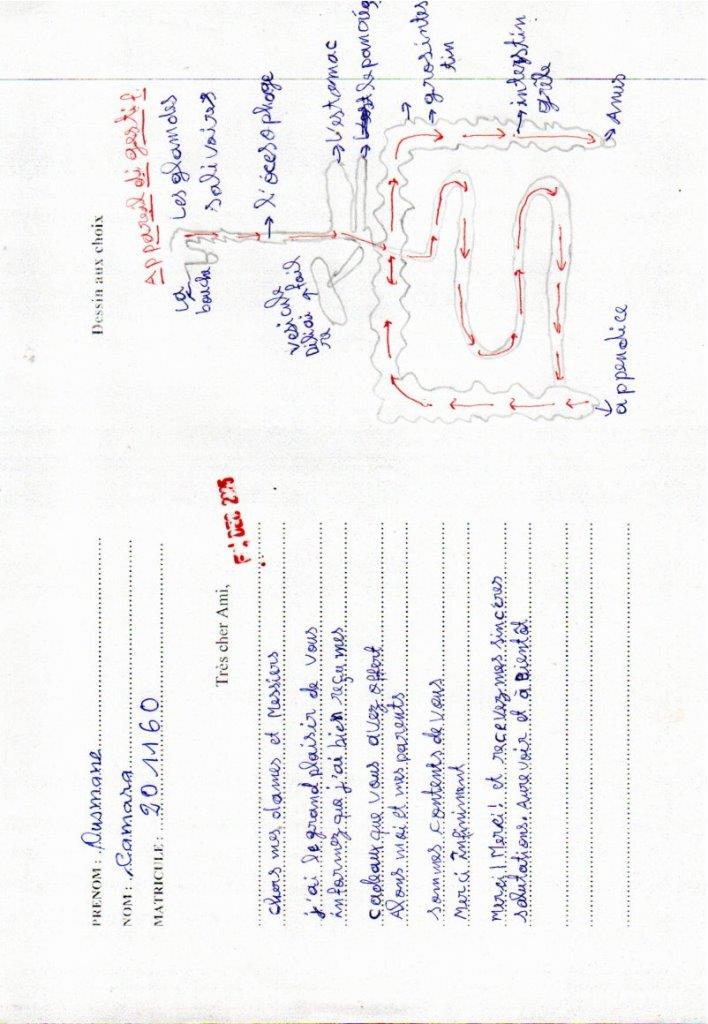 PRENOM : Ousmane
NOM : Camara
MATRICULE : 201160
Très cher Ami,
chers mes dames et Messiers
j'ai le grand plaisir de vous
informez que j'ai bien reçu mes
cadeaux que vous avez offert
Alons moi et mes parents
sommes contents de vous
Merci Infiniment
Merci! Merci! et recevez mes sincères
salutations. Aurevoir et à Bientôt
Dessin aux choix
Appareil di gestif
La
bouche
Les glandes
salivaires
→ l'ocesophage
vesicule
biliai
re
foie
→ L'estomac
→ grosintes
tin
→ intenstin
grêle
→ Anus
appendice